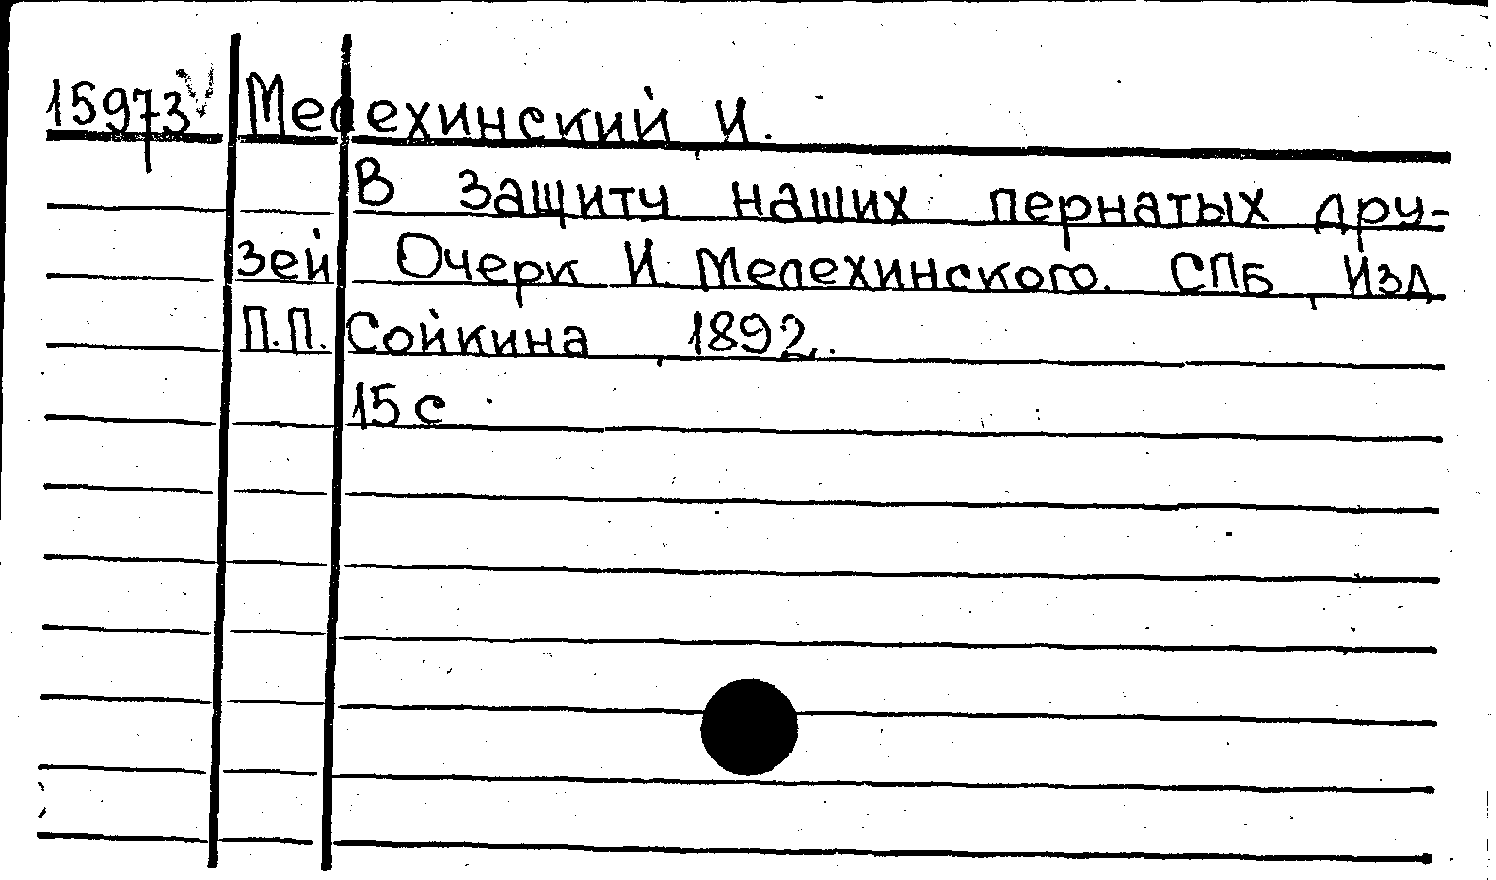 15973 Мелехинский И.
В защиту наших пернатых дру-
зей Очерк И. Мелехинского. СПБ, Изд
П.П. Сойкина, 1892.
15 с.